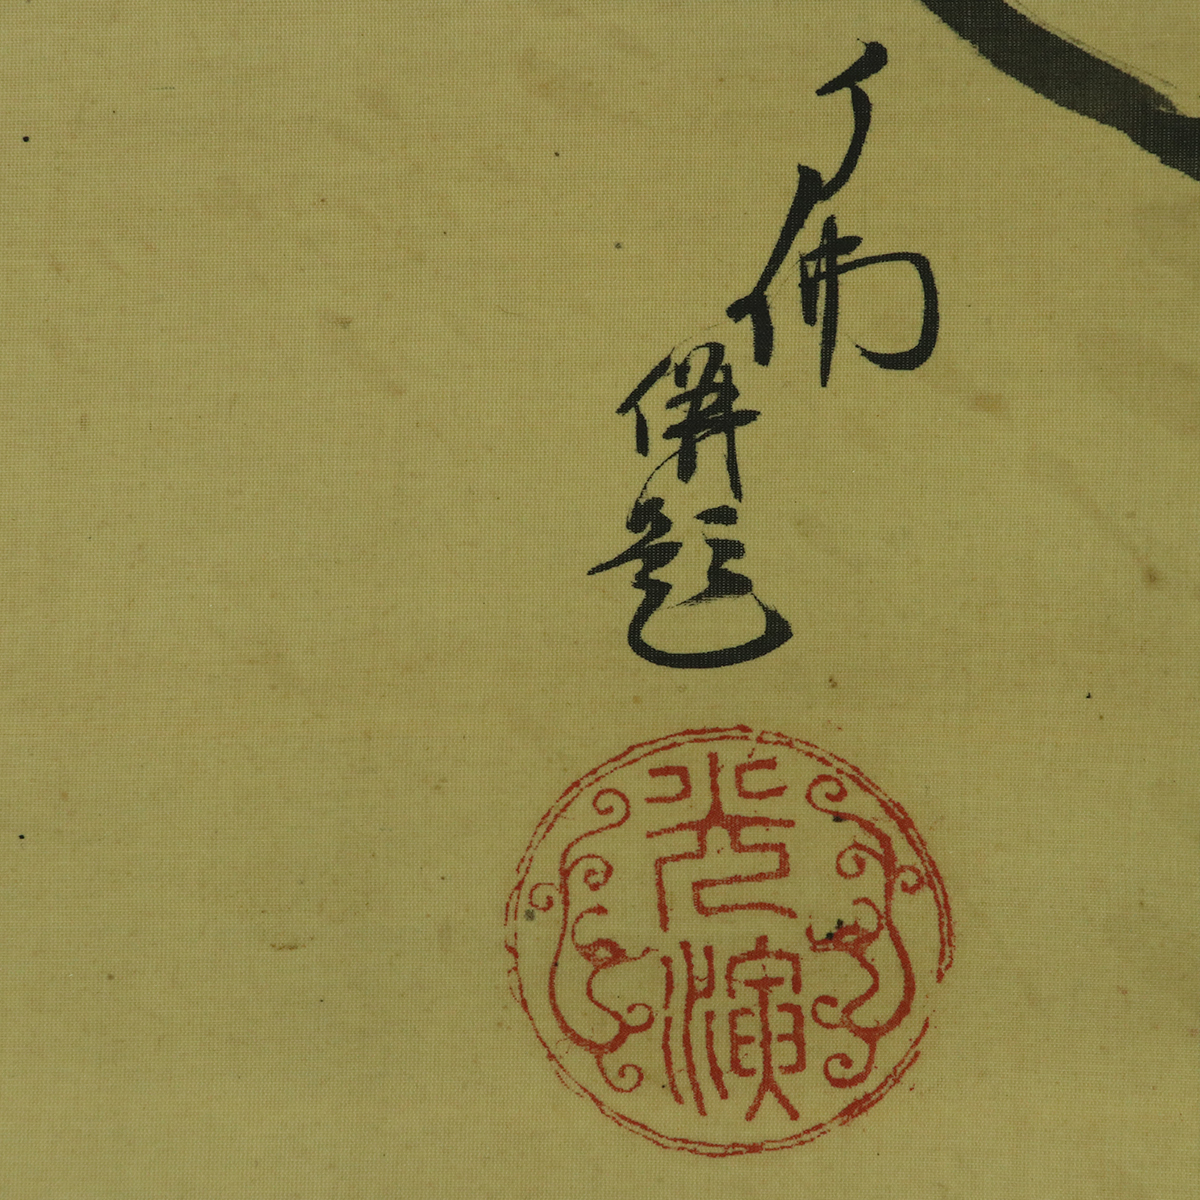 了佛
併題
光演